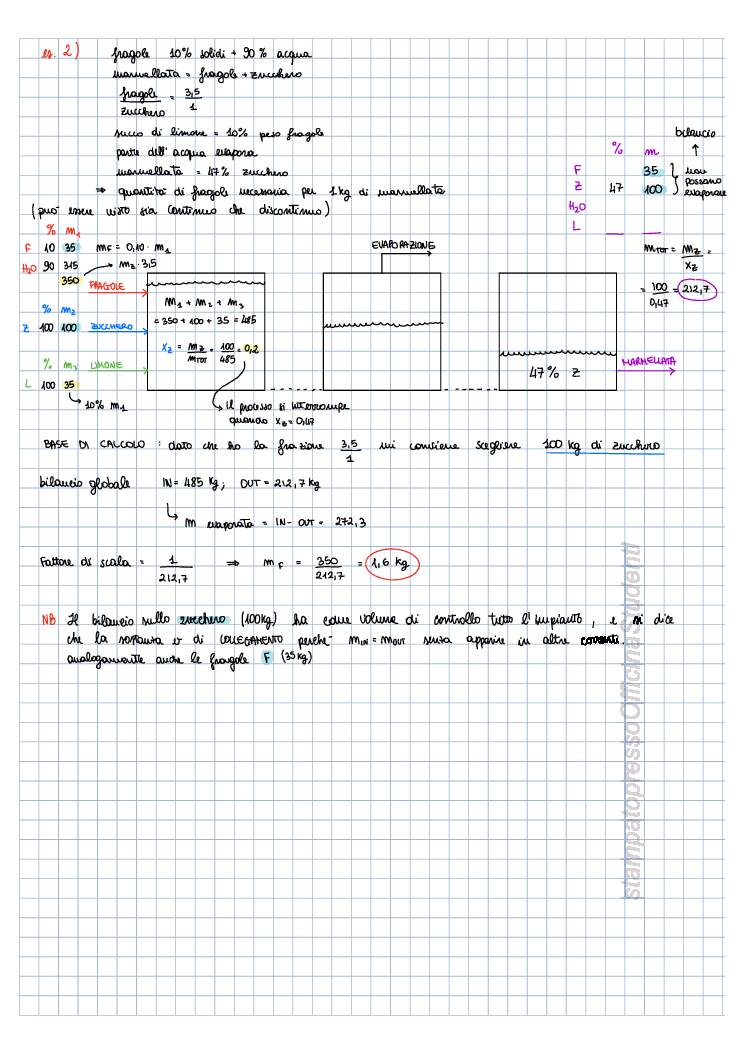 es. 2) fragole 10% solidi + 90% acqua
marmellata = fragole + zucchero
fragole / zucchero = 3,5 / 1
succo di limone = 10% peso fragole
parte dell'acqua evapora
marmellata = 47% zucchero
⇒ quantità di fragole necessaria per 1 kg di marmellata
(può essere visto sia continuo che discontinuo)
bilancio
↑
% m
F 35 } non possono evaporare
Z 47 100
H₂O
L
mTOT = mZ / XZ =
= 100 / 0,47 = 212,7
% m₁
F 10 35 mF = 0,10 · m₁
H₂O 90 315 → m₂ · 3,5
350 FRAGOLE
% m₂
Z 100 100 ZUCCHERO
% m₃ LIMONE
L 100 35
↳ 10% m₁
m₁ + m₂ + m₃
= 350 + 100 + 35 = 485
XZ = mZ / mTOT = 100 / 485 = 0,2
↳ il processo si interrompe
quando XZ = 0,47
EVAPORAZIONE
47% Z
MARMELLATA
BASE DI CALCOLO : dato che ho la frazione 3,5 / 1 mi conviene scegliere 100 kg di zucchero
bilancio globale IN = 485 kg ; OUT = 212,7 kg
↳ m evaporata = IN - OUT = 272,3
Fattore di scala = 1 / 212,7 ⇒ mF = 350 / 212,7 = 1,6 kg
NB Il bilancio sullo zucchero (100kg) ha come volume di controllo tutto l'impianto, e si dice
che la sostanza è di COLLEGAMENTO perchè mIN = mOUT senza apparire in altre correnti.
analogamente anche le fragole F (35 kg)
stampatopressoOfficinaStudenti